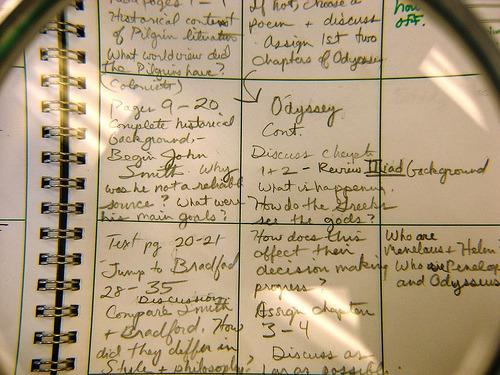 pages 1 - 1
Historical content
of Pilgrim literature
What worldview did
the Pilgrims have?
(Colonists)
Pages 9-20
Complete historical
background,-
Begin John
Smith. Why
was he not a reliable
source? What were
his main goals?
Text pg. 20-21
Jump to Bradford
28-35
Discussion:
Compare Smith
+ Bradford. How
did they differ in
Style + philosophy?
If not, choose a
poem + discuss
Assign 1st two
chapters of Odyssey
Odyssey
Cont.
Discuss chapts
1+2 - Review Iliad background
What is happening.
How do the Greeks
see the gods?
How does this
affect their
decision making
progress?
Assign chapters
3-4
Discuss as
far as possible.
how
OFF.
Who are
Menelaus + Helen
Who are Penelope
and Odysseus